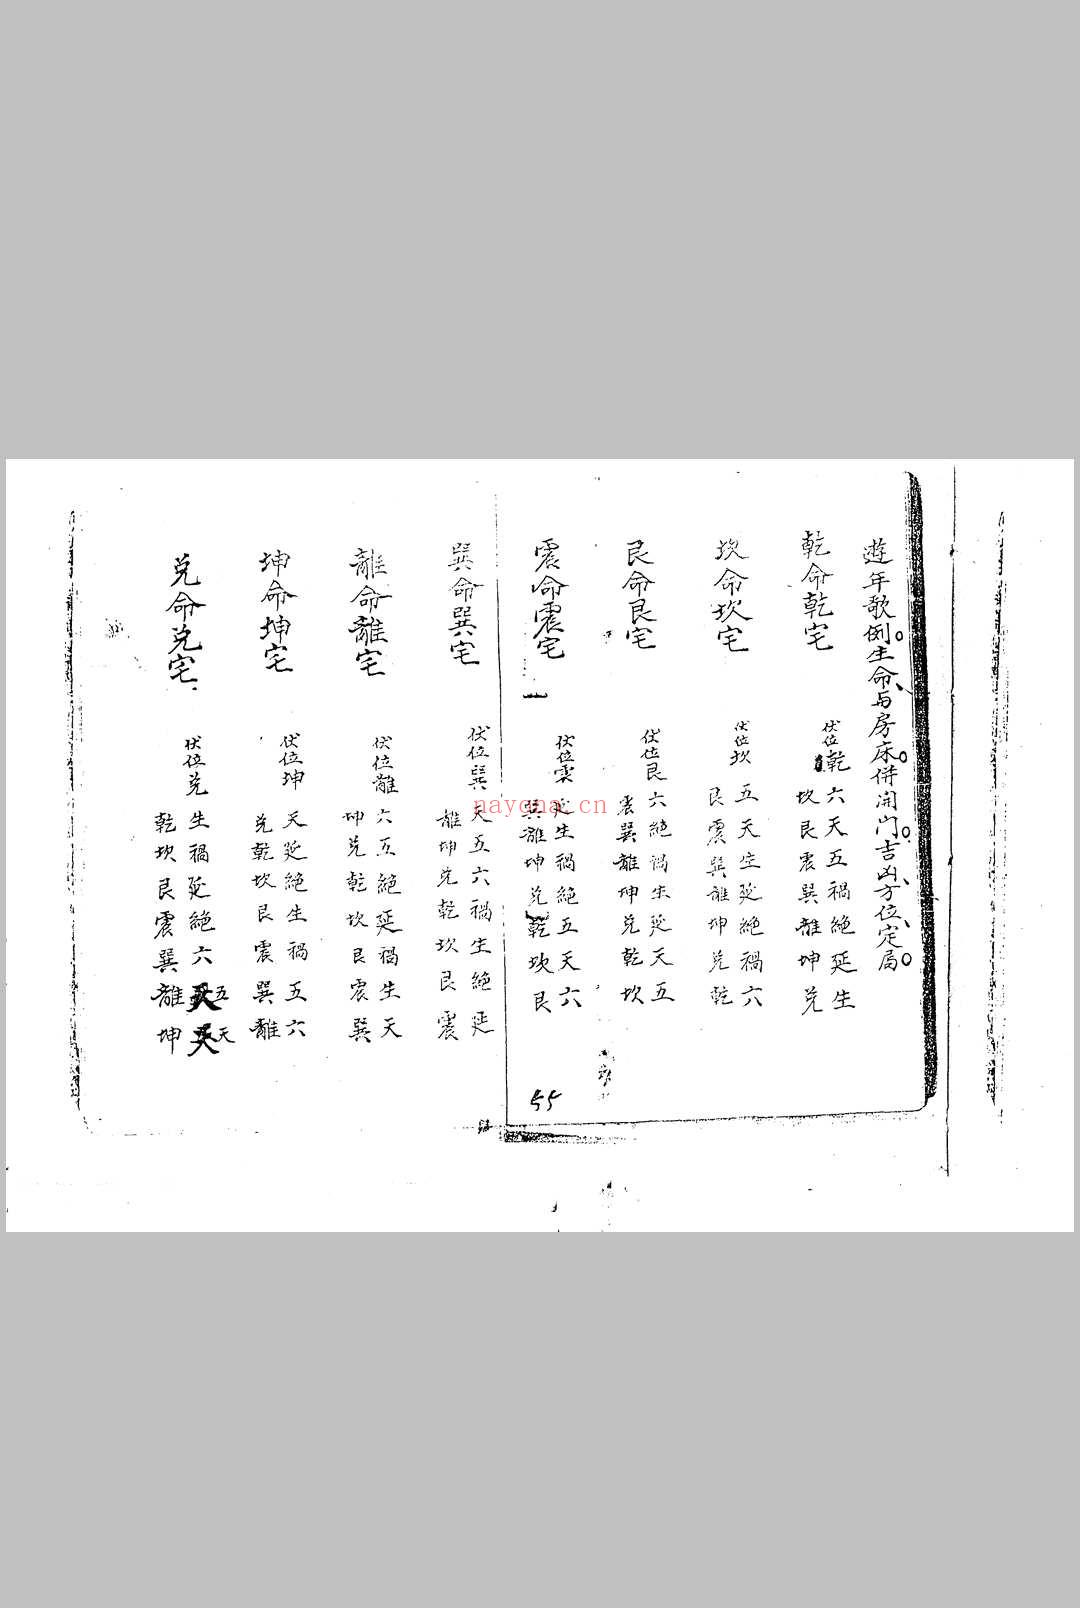 遊年歌例。生命、与房床。併開门。吉凶、方位、定局。
乾命乾宅
伏位乾
六天五禍絕延生
坎艮震巽離坤兌
坎命坎宅
伏位坎
五天生延絕禍六
艮震巽離坤兌乾
艮命艮宅
伏位艮
六絕禍生延天五
震巽離坤兌乾坎
震命震宅
伏位震
延生禍絕五天六
巽離坤兌乾坎艮
55
巽命巽宅
伏位巽
天五六禍生絕延
離坤兌乾坎艮震
離命離宅
伏位離
六五絕延禍生天
坤兌乾坎艮震巽
坤命坤宅
伏位坤
天延絕生禍五六
兌乾坎艮震巽離
兌命兌宅
伏位兌
生禍延絕六五天
乾坎艮震巽離坤
nayona.cn